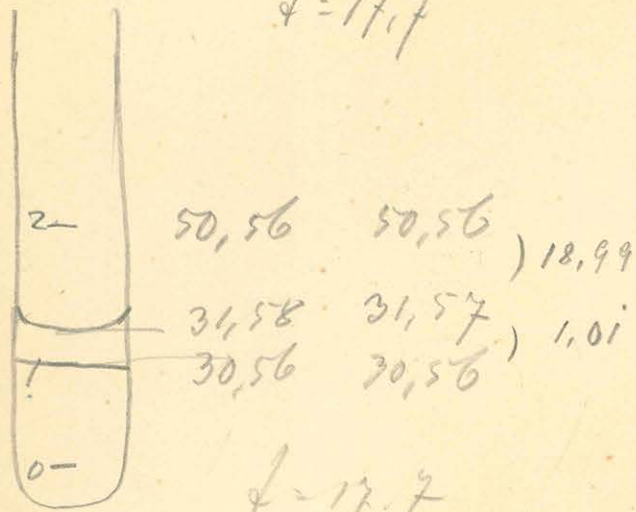 t = 17,7
2-
50,56 50,56
) 18,99
31,58 31,57
) 1,01
1
30,56 30,56
0-
t = 17,7